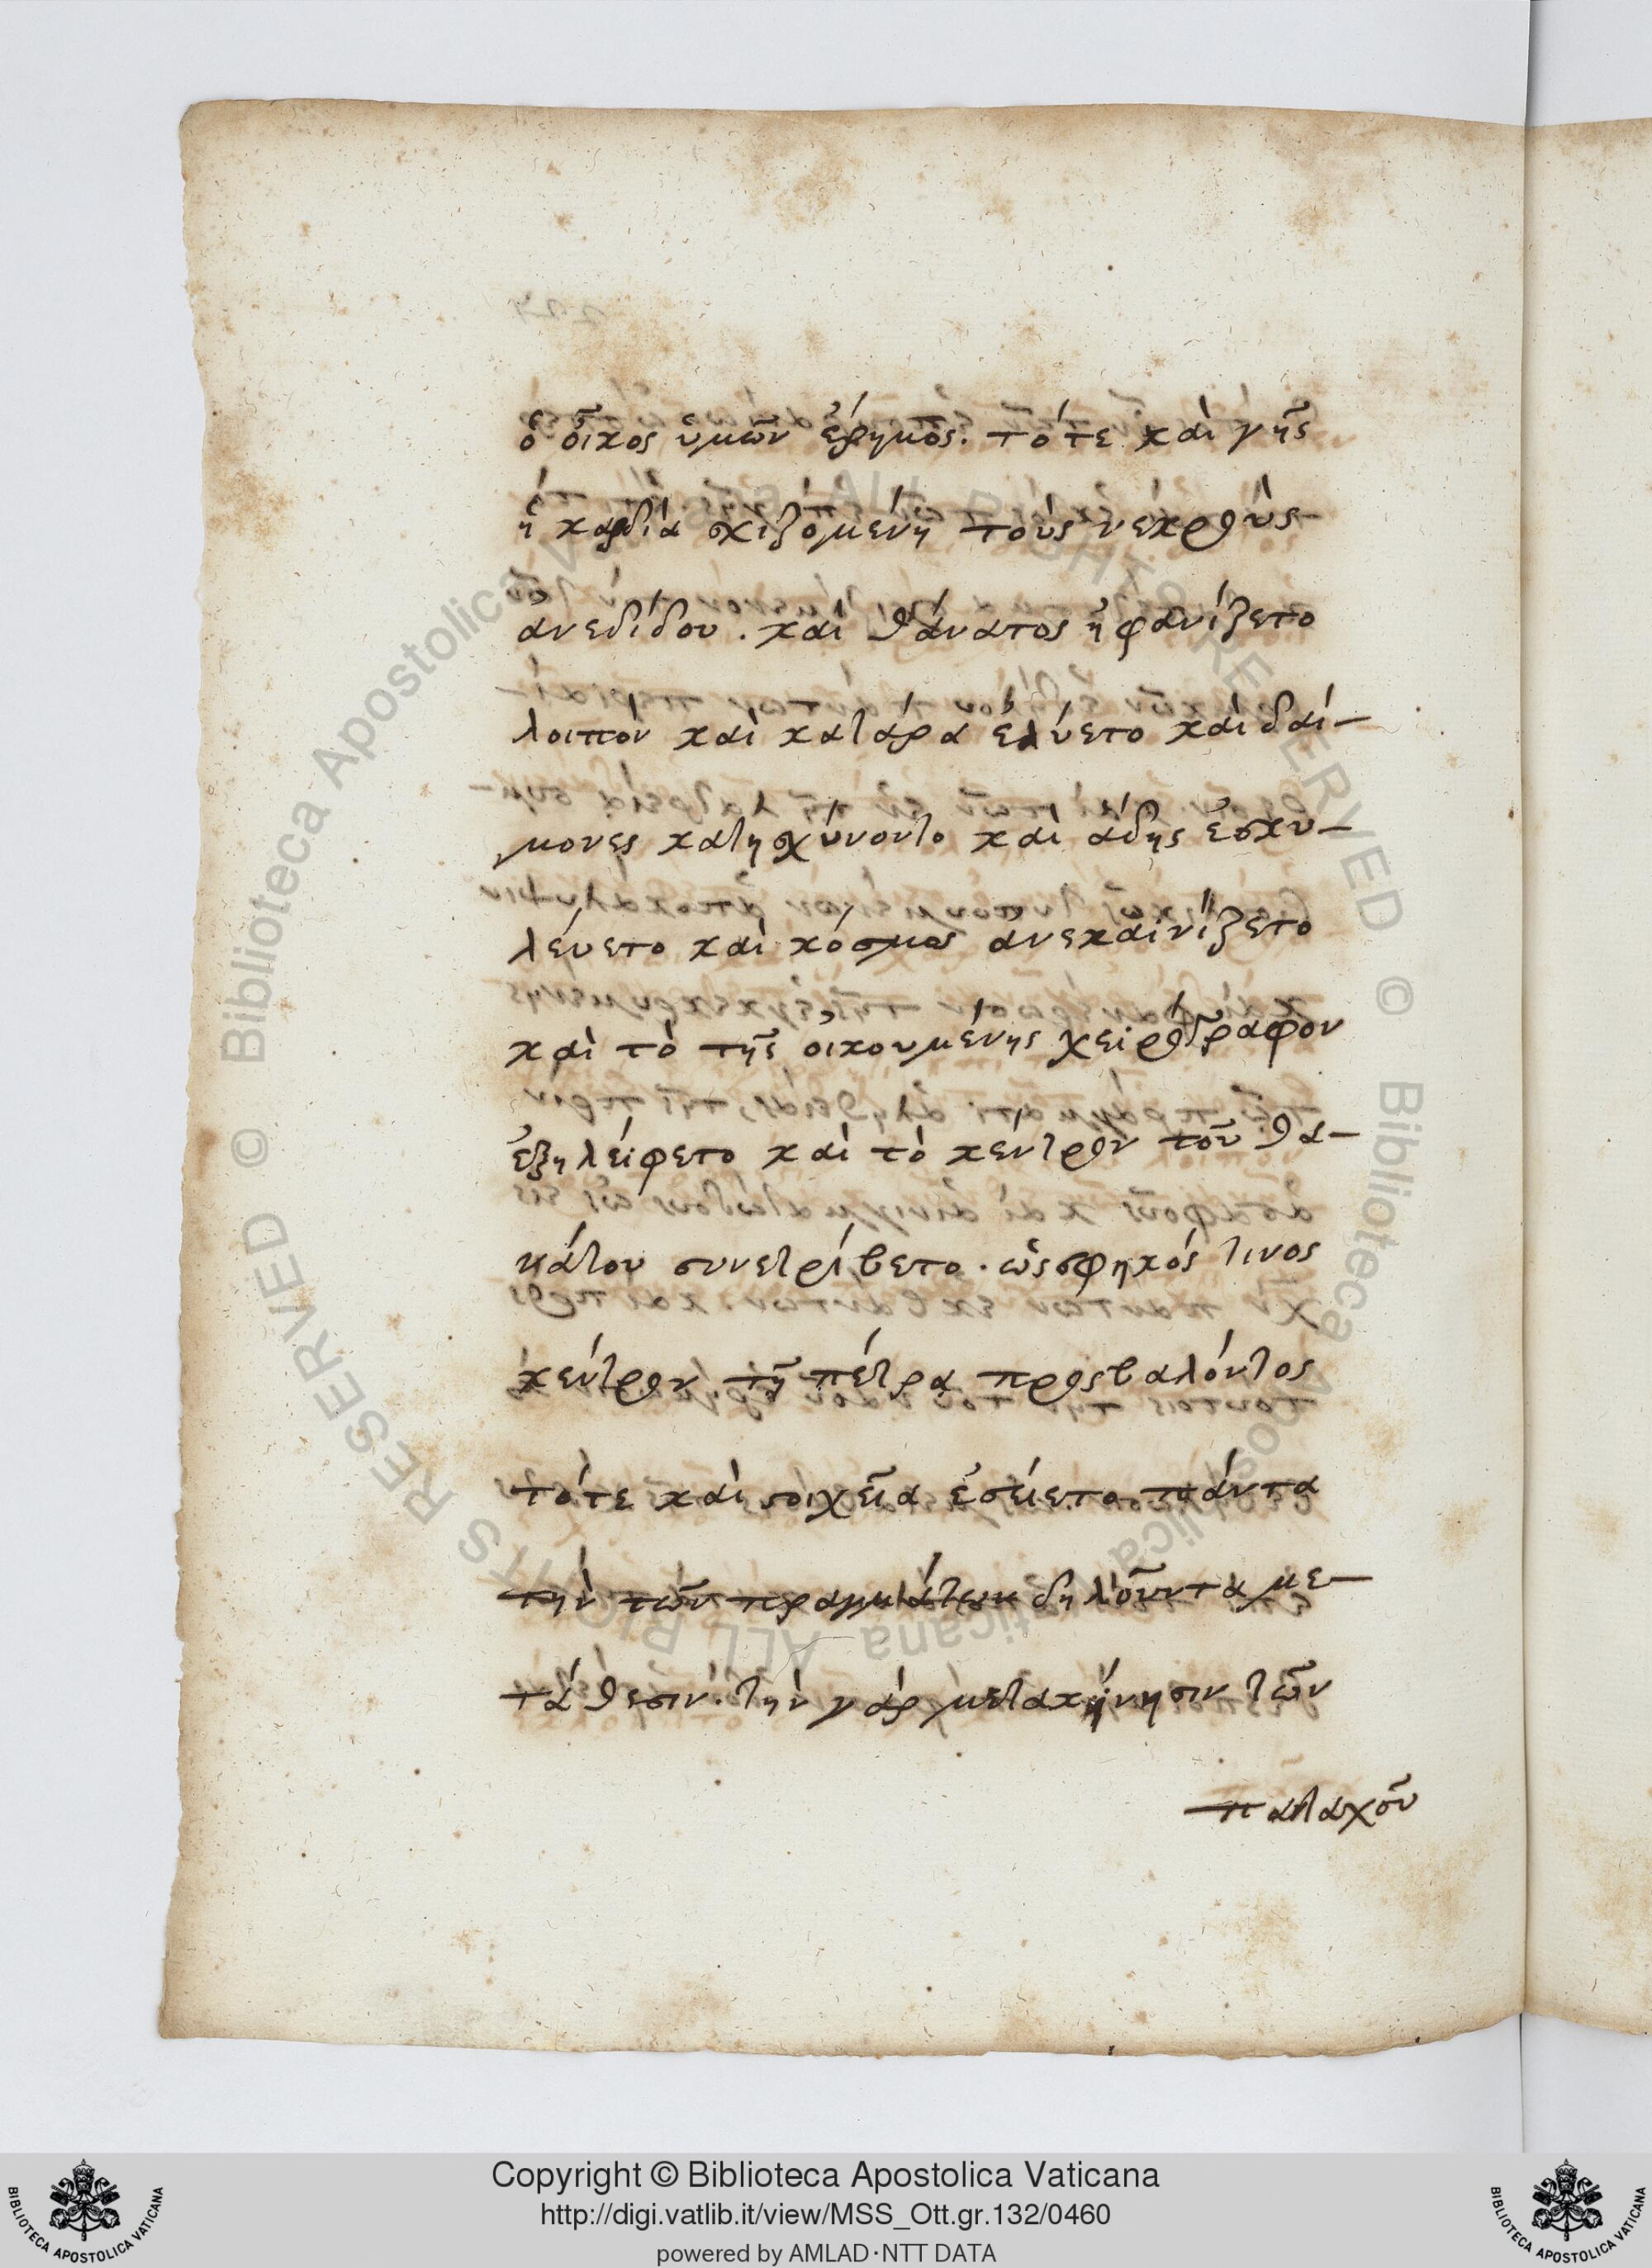 ὁ οἶκος ὑμῶν ἔρημος. τότε καὶ γῆς
ἡ καρδία σχιζομένη τοὺς νεκροὺς
ἀνεδίδου. καὶ θάνατος ἠφανίζετο
λοιπὸν καὶ κατάρα ἐλύετο καὶ δαί-
μονες κατησχύνοντο καὶ ἅδης ἐσκυ-
λεύετο καὶ κόσμος ἀνεκαινίζετο
καὶ τὸ τῆς οἰκουμένης χειρόγραφον
ἐξηλείφετο καὶ τὸ κέντρον τοῦ θα-
νάτου συνετρίβετο. ὡς σφηκός τινος
κέντρον τῇ πέτρᾳ προςβαλόντος
τότε καὶ στοιχεῖα ἐσείετο πάντα
τὴν τῶν πραγμάτων δηλοῦντα με-
τάθεσιν. τὴν γὰρ μετακήνησιν τῶν
παταχοῦ
Copyright © Biblioteca Apostolica Vaticana
http://digi.vatlib.it/view/MSS_Ott.gr.132/0460
powered by AMLAD·NTT DATA
© Biblioteca Apostolica Vaticana ALL RIGHTS RESERVED
© Biblioteca Apostolica Vaticana ALL RIGHTS RESERVED
BIBLIOTECA APOSTOLICA VATICANA
BIBLIOTECA APOSTOLICA VATICANA